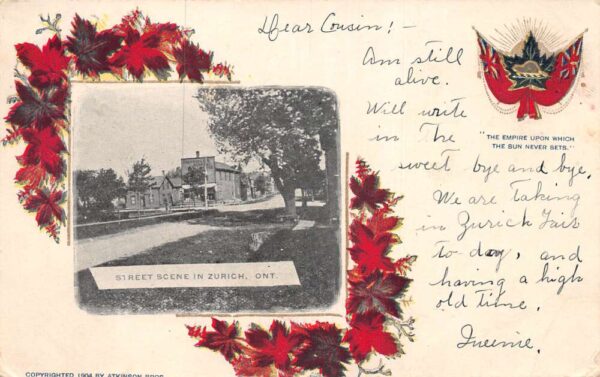 Dear Cousin! -
Am still
alive.
Will write
in the
sweet bye and bye.
We are taking
in Zurich Fair
to-day, and
having a high
old time.
"THE EMPIRE UPON WHICH
THE SUN NEVER SETS."
STREET SCENE IN ZURICH, ONT.
COPYRIGHTED 1904 BY ATKINSON BROS.